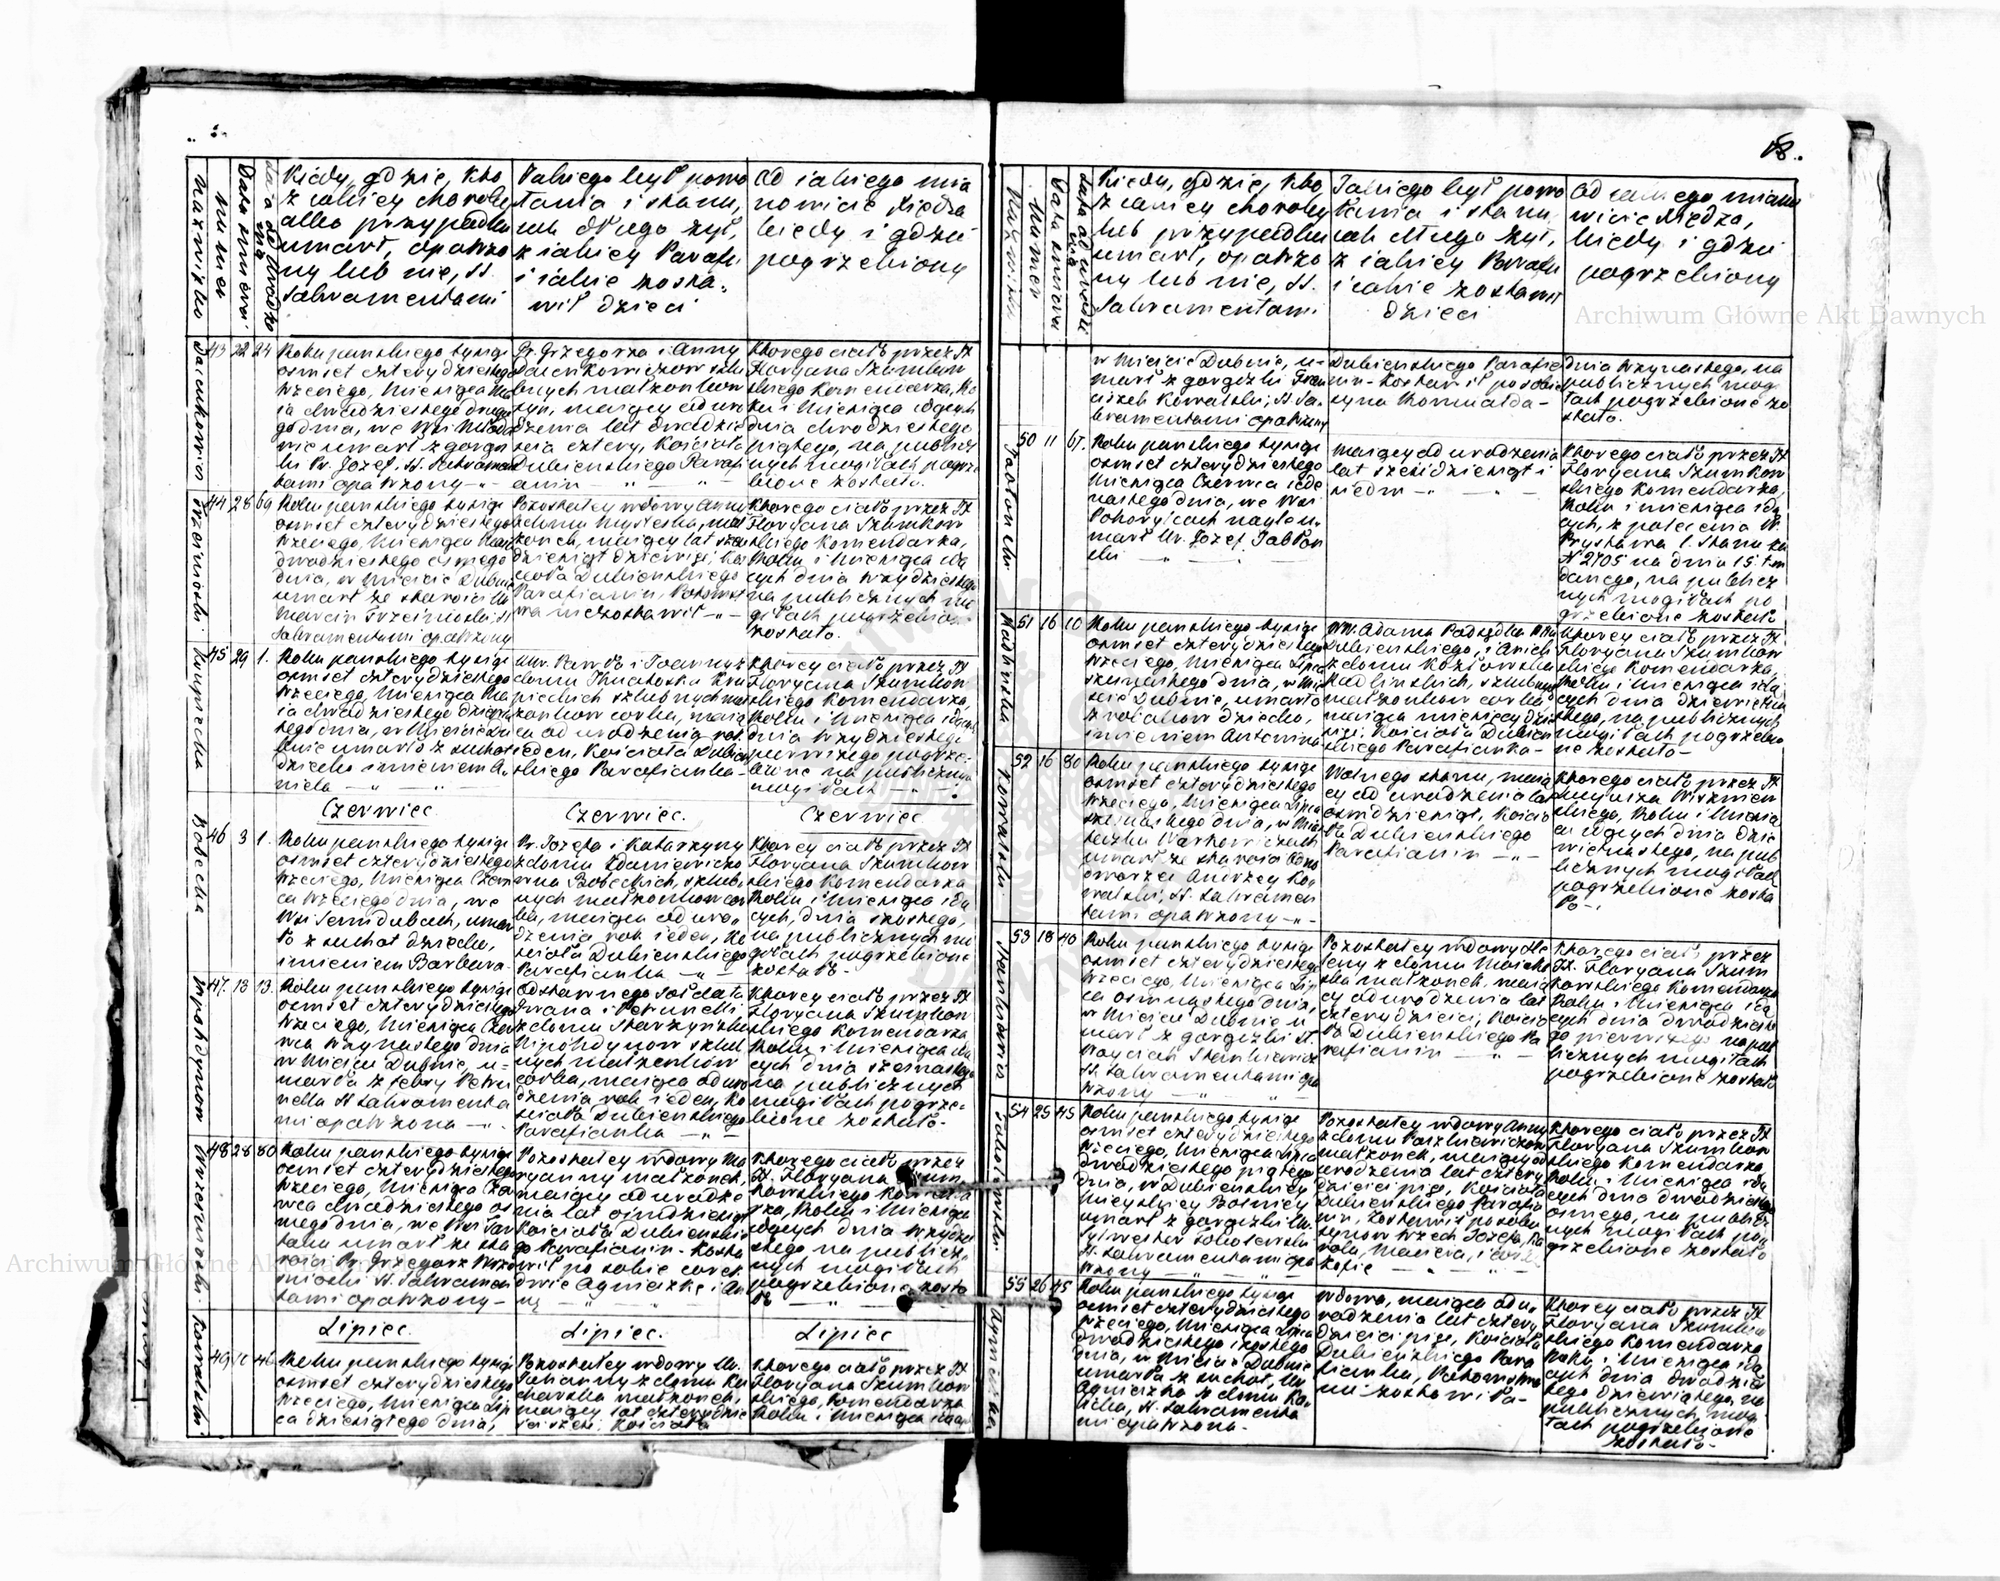 18.
Nazwisko
Numer
Data śmierci
Kiedy, gdzie, kto
z iakiey choroby
albo przypadku
umarł, opatrzo
ny lub nie, SS.
Sakramentami
Jakiego był powo
łania i stanu,
iak długo żył,
z iakiey Parafii
i iakie zosta-
wił dzieci
Od iakiego mia
nowicie Xiędza
kiedy i gdzie
pogrzebiony
43 22 24
Roku pańskiego tysiąc
ośmset czterydziestego
trzeciego, Miesiąca Ma
ia dwudziestego drugie
go dnia, we Wsi
umarł z gorącz
ki Ur. Józef, SS. Sakramen
tami opatrzony
Ur. Grzegorza i Anny
szlu
bnych małżonków
syn, maiący od uro
dzenia lat dwadzie
ścia cztery, Kościoła
Dubienskiego Parafi
anin
Którego ciało przez JX
Floryana Szumkow
skiego Komendarza, Ro
ku i Miesiąca idących
dnia dwudziestego
piątego, na publicz
nych mogiłach pogrze
bione zostało.
Trzciński
44 28 69
Roku pańskiego tysiąc
ośmset czterydziestego
trzeciego, Miesiąca Maia
dwudziestego ósmego
dnia, w Mieście Dubnie
umarł ze starości Ur.
Marcin SS.
Sakramentami opatrzony
Pozostałey wdowy Anny
z domu mał
żonek, maiący lat sześć
dziesiąt dziewięć, Koś
cioła Dubienskiego
Parafianin, Potomst
wa niezostawił
Którego ciało przez JX
Floryana Szumkow
skiego Komendarza,
Roku i Miesiąca idą
cych dnia trzydziestego
na publicznych mo
giłach pogrzebione
zostało.
Krupiecka
45 29 1.
Roku pańskiego tysiąc
ośmset czterydziestego
trzeciego, Miesiąca Ma
ia dwudziestego dziewią
tego dnia, w Mieście Du
bnie umarło z suchot
dziecko imieniem A
niela
Ur. Pawła i Joanny z
domu Kru
pieckich szlubnych mał
żonków córka, maią
ca od urodzenia rok
ieden, Kościoła Dubien
skiego Parafianka
Którey ciało przez JX
Floryana Szumkow
skiego Komendarza,
Roku i Miesiąca idących
dnia trzydziestego
pierwszego pogrze-
bione na publicznych
mogiłach
Czerwiec.
Czerwiec.
Czerwiec
Bobecka
46 3 1.
Roku pańskiego tysiąc
ośmset czterydziestego
trzeciego, Miesiąca Czerw
ca trzeciego dnia, we
Wsi Semidubach, umar
ło z suchot dziecko,
imieniem Barbara
Ur. Józefa i Katarzyny
z domu
Bobeckich, szlub
nych małżonków cór
ka, maiąca od uro-
dzenia rok ieden, Ko
ścioła Dubienskiego
Parafianka
Którey ciało przez JX
Floryana Szumkow
skiego Komendarza
Roku i Miesiąca idą
cych, dnia szóstego,
na publicznych mo
giłach pogrzebione
zostało
47. 13 13.
Roku pańskiego tysiąc
ośmset czterydziestego
trzeciego, Miesiąca Czer
wca trzynastego dnia
w Mieście Dubnie, u-
marła z febry Petru
nella SS. Sakramenta
mi opatrzona
Odstawnego sołdata
Iwana i Petrunelli
z domu Starzyńskich
szlub
nych małżonków
córka, maiąca od uro
dzenia rok ieden, Ko
ścioła Dubienskiego
Parafianka
Którey ciało przez JX
Floryana Szumkow
skiego Komendarza
Roku i Miesiąca idą
cych dnia szesnastego
na publicznych
mogiłach pogrze-
bione zostało.
Wrześniowski
48 28 80
Roku pańskiego tysiąc
ośmset czterydziestego
trzeciego, Miesiąca Czer
wca dwudziestego ós
mego dnia, we Wsi
umarł ze sta
rości Ur. Grzegorz Wrze
śniowski SS. Sakramen
tami opatrzony
Pozostałey wdowy Ma
ryanny małżonek,
maiący od urodze
nia lat ośmdziesiąt
Kościoła Dubienskie
go Parafianin. Zosta
wił po sobie córek
dwie Agnieszkę i An
nę
Którego ciało przez
JX. Floryana Szum
kowskiego Komenda
rza, Roku i Miesiąca
idących dnia trzydzie
stego, na publicz
nych mogiłach
pogrzebione zosta
ło
Lipiec.
Lipiec.
Lipiec
Kowalski
49 46
Roku pańskiego tysiąc
ośmset czterydziestego
trzeciego, Miesiąca Lip
ca dziesiątego dnia,
Pozostałey wdowy Ur.
z domu
małżonek,
maiący lat czterydzie
ści sześć, Kościoła
Którego ciało przez JX
Floryana Szumkow
skiego, Komendarza
Roku i Miesiąca idących
Kiedy, gdzie, kto,
z iakiey choroby
lub przypadku
umarł, opatrzo
ny lub nie, SS.
Sakramentami
Jakiego był powo
łania i stanu
iak długo żył,
z iakiey Parafii
i iakie zostawił
dzieci
Od iakiego miano
wicie Xiędza,
kiedy i gdzie
pogrzebiony
w Mieście Dubnie, u-
marł z gorączki Fran
ciszek Kowalski, SS. Sa-
kramentami opatrzony
Dubienskiego Parafia
nin. Zostawił po sobie
syna Romualda
dnia trzynastego, na
publicznych mog
iłach pogrzebione zo
stało.
Jabłoński
50 11 67.
Roku pańskiego tysiąc
ośmset czterydziestego
Miesiąca Czerwca iede
nastego dnia, we Wsi
nagle u-
marł Ur. Józef Jabłoń
ski
maiący od urodzenia
lat sześćdziesiąt i
siedm
Którego ciało przez JX
Floryana Szumkow
skiego Komendarza,
Roku i miesiąca idą
cych, z polecenia W.
Prystawa 1. Stanu za
N 2705 na dniu 15. t.m
danego, na publicz
nych mogiłach po
grzebione zostało
51 16 10
Roku pańskiego tysiąc
ośmset czterydziestego
trzeciego, Miesiąca Lipca
szesnastego dnia, w Mie
ście Dubnie, umarło
dziecko,
imieniem Antonina
WW. Adama
Dubienskiego, i
z domu Kozłowska
szlubnych
małżonków córka
maiąca miesięcy dzie
sięć, Kościoła Dubien
skiego Parafianka
Którey ciało przez JX
Floryana Szumkow
skiego Komendarza,
Roku i Miesiąca idą
cych dnia dziewiętna
stego, na publicznych
mogiłach pogrzebio
ne zostało
Kowalski
52 16 80
Roku pańskiego tysiąc
ośmset czterydziestego
trzeciego, Miesiąca Lipca
szesnastego dnia, w Mias
teczku Warkowiczach
umarł ze starości
Andrzey Ko
walski, SS. Sakramen
tami opatrzony
Wolnego stanu, maią
cy od urodzenia lat
ośmdziesiąt, Kościo
ła Dubienskiego
Parafianin
Którego ciało przez JX
skiego, Roku i Miesią
ca idących dnia dzie
więtnastego, na pub
licznych mogiłach
pogrzebione zosta
ło
Stankiewicz
53 18 40
Roku pańskiego tysiąc
ośmset czterydziestego
trzeciego, Miesiąca Lip
ca ośmnastego dnia,
w Mieście Dubnie u
marł z gorączki Ur.
Woyciech Stankiewicz
SS. Sakramentami opa
trzony
Pozostałey wdowy He
leny z domu
małżonek, maią
cy od urodzenia lat
czterydzieści, Kościo
ła Dubienskiego Pa
rafianin
Którego ciało przez
JX. Floryana Szum
kowskiego Komendarza
Roku i Miesiąca idą
cych dnia dwudzieste
go pierwszego na pub
licznych mogiłach
pogrzebione zostało
Sokołowski
54 25 45
Roku pańskiego tysiąc
ośmset czterydziestego
trzeciego, Miesiąca Lipca
dwudziestego piątego
dnia, w Dubienskiey
Mieyskiey Bolnicy
umarł z gorączki Ur.
Sylwester Sokołowski
SS. Sakramentami opa
trzony
Pozostałey wdowy Anny
z domu
małżonek, maiący od
urodzenia lat cztery
dzieści pięć, Kościoła
Dubienskiego Parafia
nin, Zostawił po sobie
synów trzech Józefa, Ka
rola, Macieia, i córkę
Zofię
Którego ciało przez JX
Floryana Szumkow
skiego Komendarza
Roku i Miesiąca idą
cych dnia dwudziestego
ósmego, na publicz
nych mogiłach po
grzebione zostało
55 26 45
Roku pańskiego tysiąc
ośmset czterydziestego
trzeciego, Miesiąca Lipca
dwudziestego szóstego
dnia, w Mieście Dubnie
umarła z suchot, Ur.
Agnieszka z domu
SS. Sakramenta
mi opatrzona.
Wdowa, maiąca od u-
rodzenia lat cztery
dzieści pięć, Kościoła
Dubienskiego Para
fianka, Potomstwa
nie zostawiła
Którey ciało przez JX
Floryana Szumkow
skiego Komendarza
Roku i Miesiąca idą
cych dnia dwudzies
tego dziewiątego, na
publicznych mog
iłach pogrzebione
zostało
Archiwum Główne Akt Dawnych
Archiwum Główne Akt Dawnych